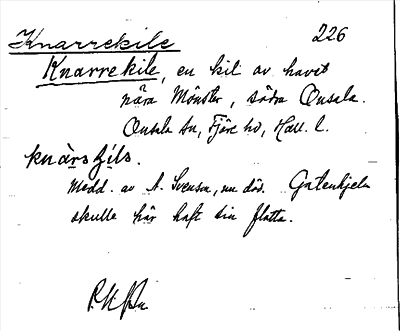 Knarrekile 226
Knarrekile, en kil av havet
nära Mönster, södra Onsala.
Onsala sn, Fjäre hd, Hall. l.
Medd. av A. Svenson, nu död. Gatenhjelm
skulle här haft sin flotta.